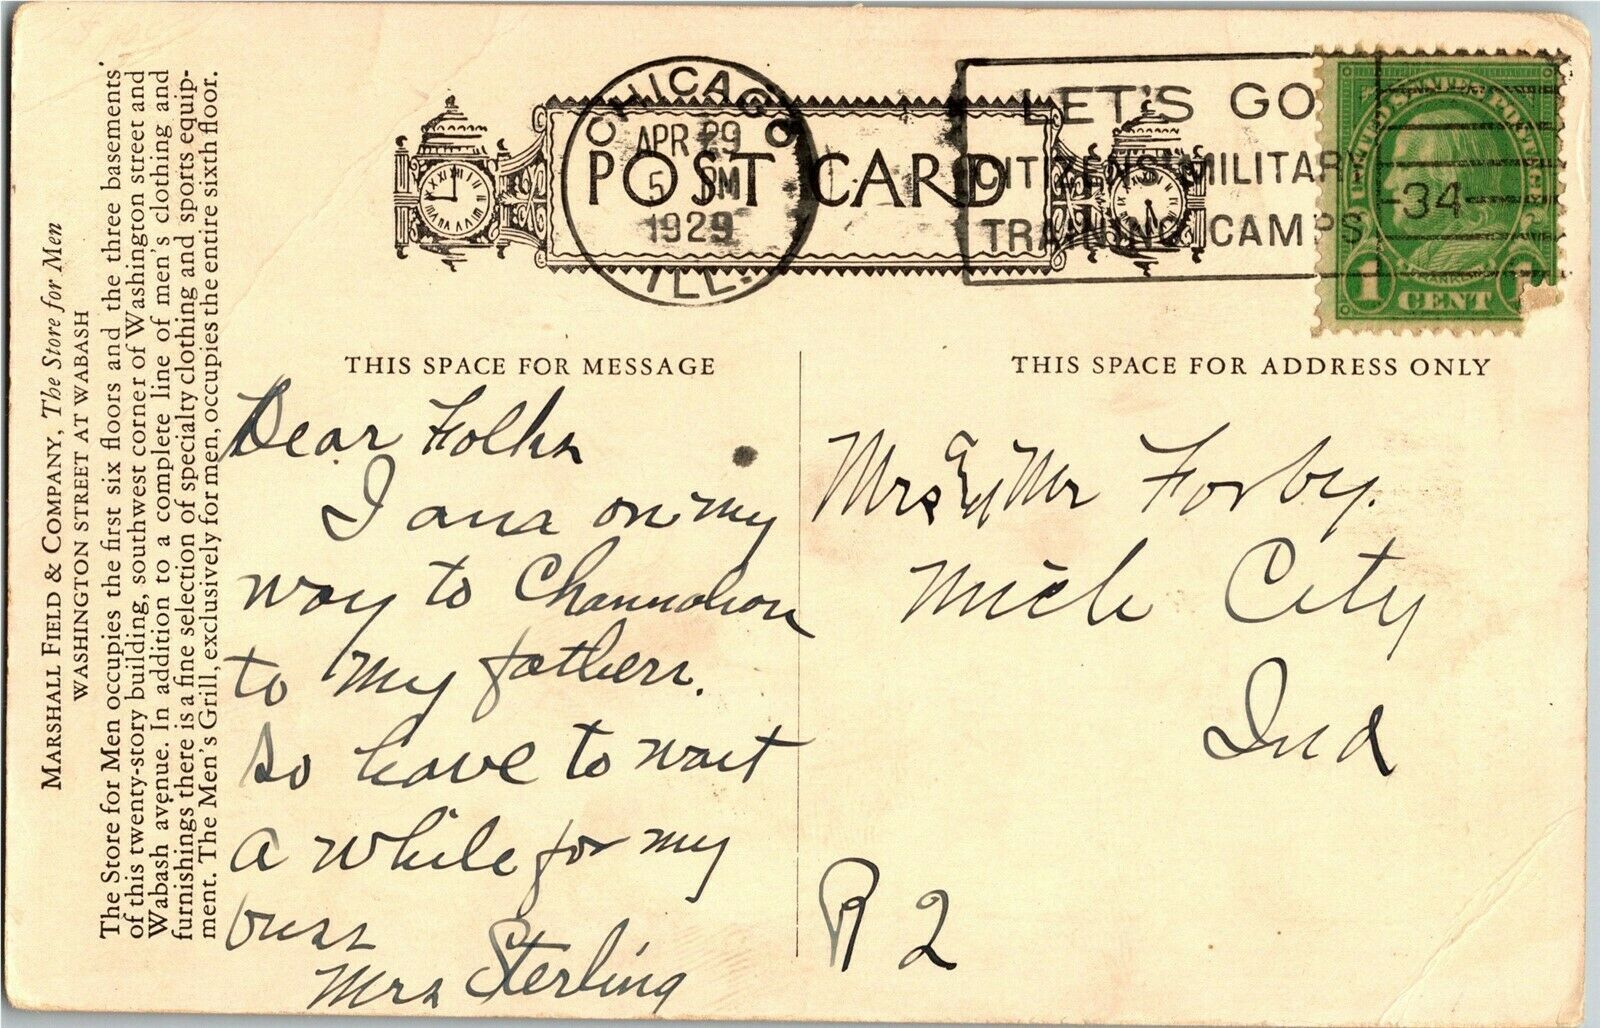 MARSHALL FIELD & COMPANY, The Store for Men
WASHINGTON STREET AT WABASH
The Store for Men occupies the first six floors and the three basements
of this twenty-story building, southwest corner of Washington street and
Wabash avenue. In addition to a complete line of men's clothing and
furnishings there is a fine selection of specialty clothing and sports equip-
ment. The Men's Grill, exclusively for men, occupies the entire sixth floor.
CHICAGO
APR 29
5 PM
1929
ILL.
POST CARD
LET'S GO
CITIZENS' MILITARY
TRAINING CAMPS
-34-
UNITED STATES POSTAGE
FRANKLIN
1 CENT 1
THIS SPACE FOR MESSAGE
Dear Folks
I am on my
way to Channahon
to my fathers.
so have to wait
a while for my
buss
Mrs Sterling
THIS SPACE FOR ADDRESS ONLY
Mrs & Mr Forby.
Mich City
Ind
R 2